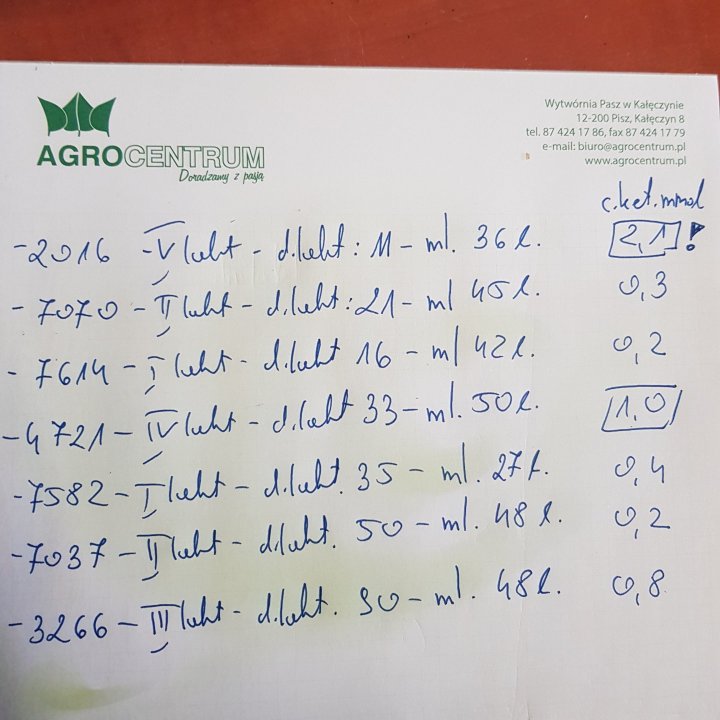 AGROCENTRUM
Doradzamy z pasją
Wytwórnia Pasz w Kałęczynie
12-200 Pisz, Kałęczyn 8
tel. 87 424 17 86, fax 87 424 17 79
e-mail: biuro@agrocentrum.pl
www.agrocentrum.pl
c.ket.mmol
-2016 -V lakt - d.lakt: 11 - ml. 36 l. 2,1 !
- 7070 - II lakt - d.lakt: 21 - ml 45 l. 0,3
- 7614 - I lakt - d.lakt 16 - ml 42 l. 0,2
-4721 - IV lakt - d.lakt 33 - ml. 50 l. 1,0
-7582 - I lakt - d.lakt. 35 - ml. 27 l. 0,4
-7037 - II lakt - d.lakt. 50 - ml. 48 l. 0,2
-3266 - III lakt - d.lakt. 90 - ml. 48 l. 0,8